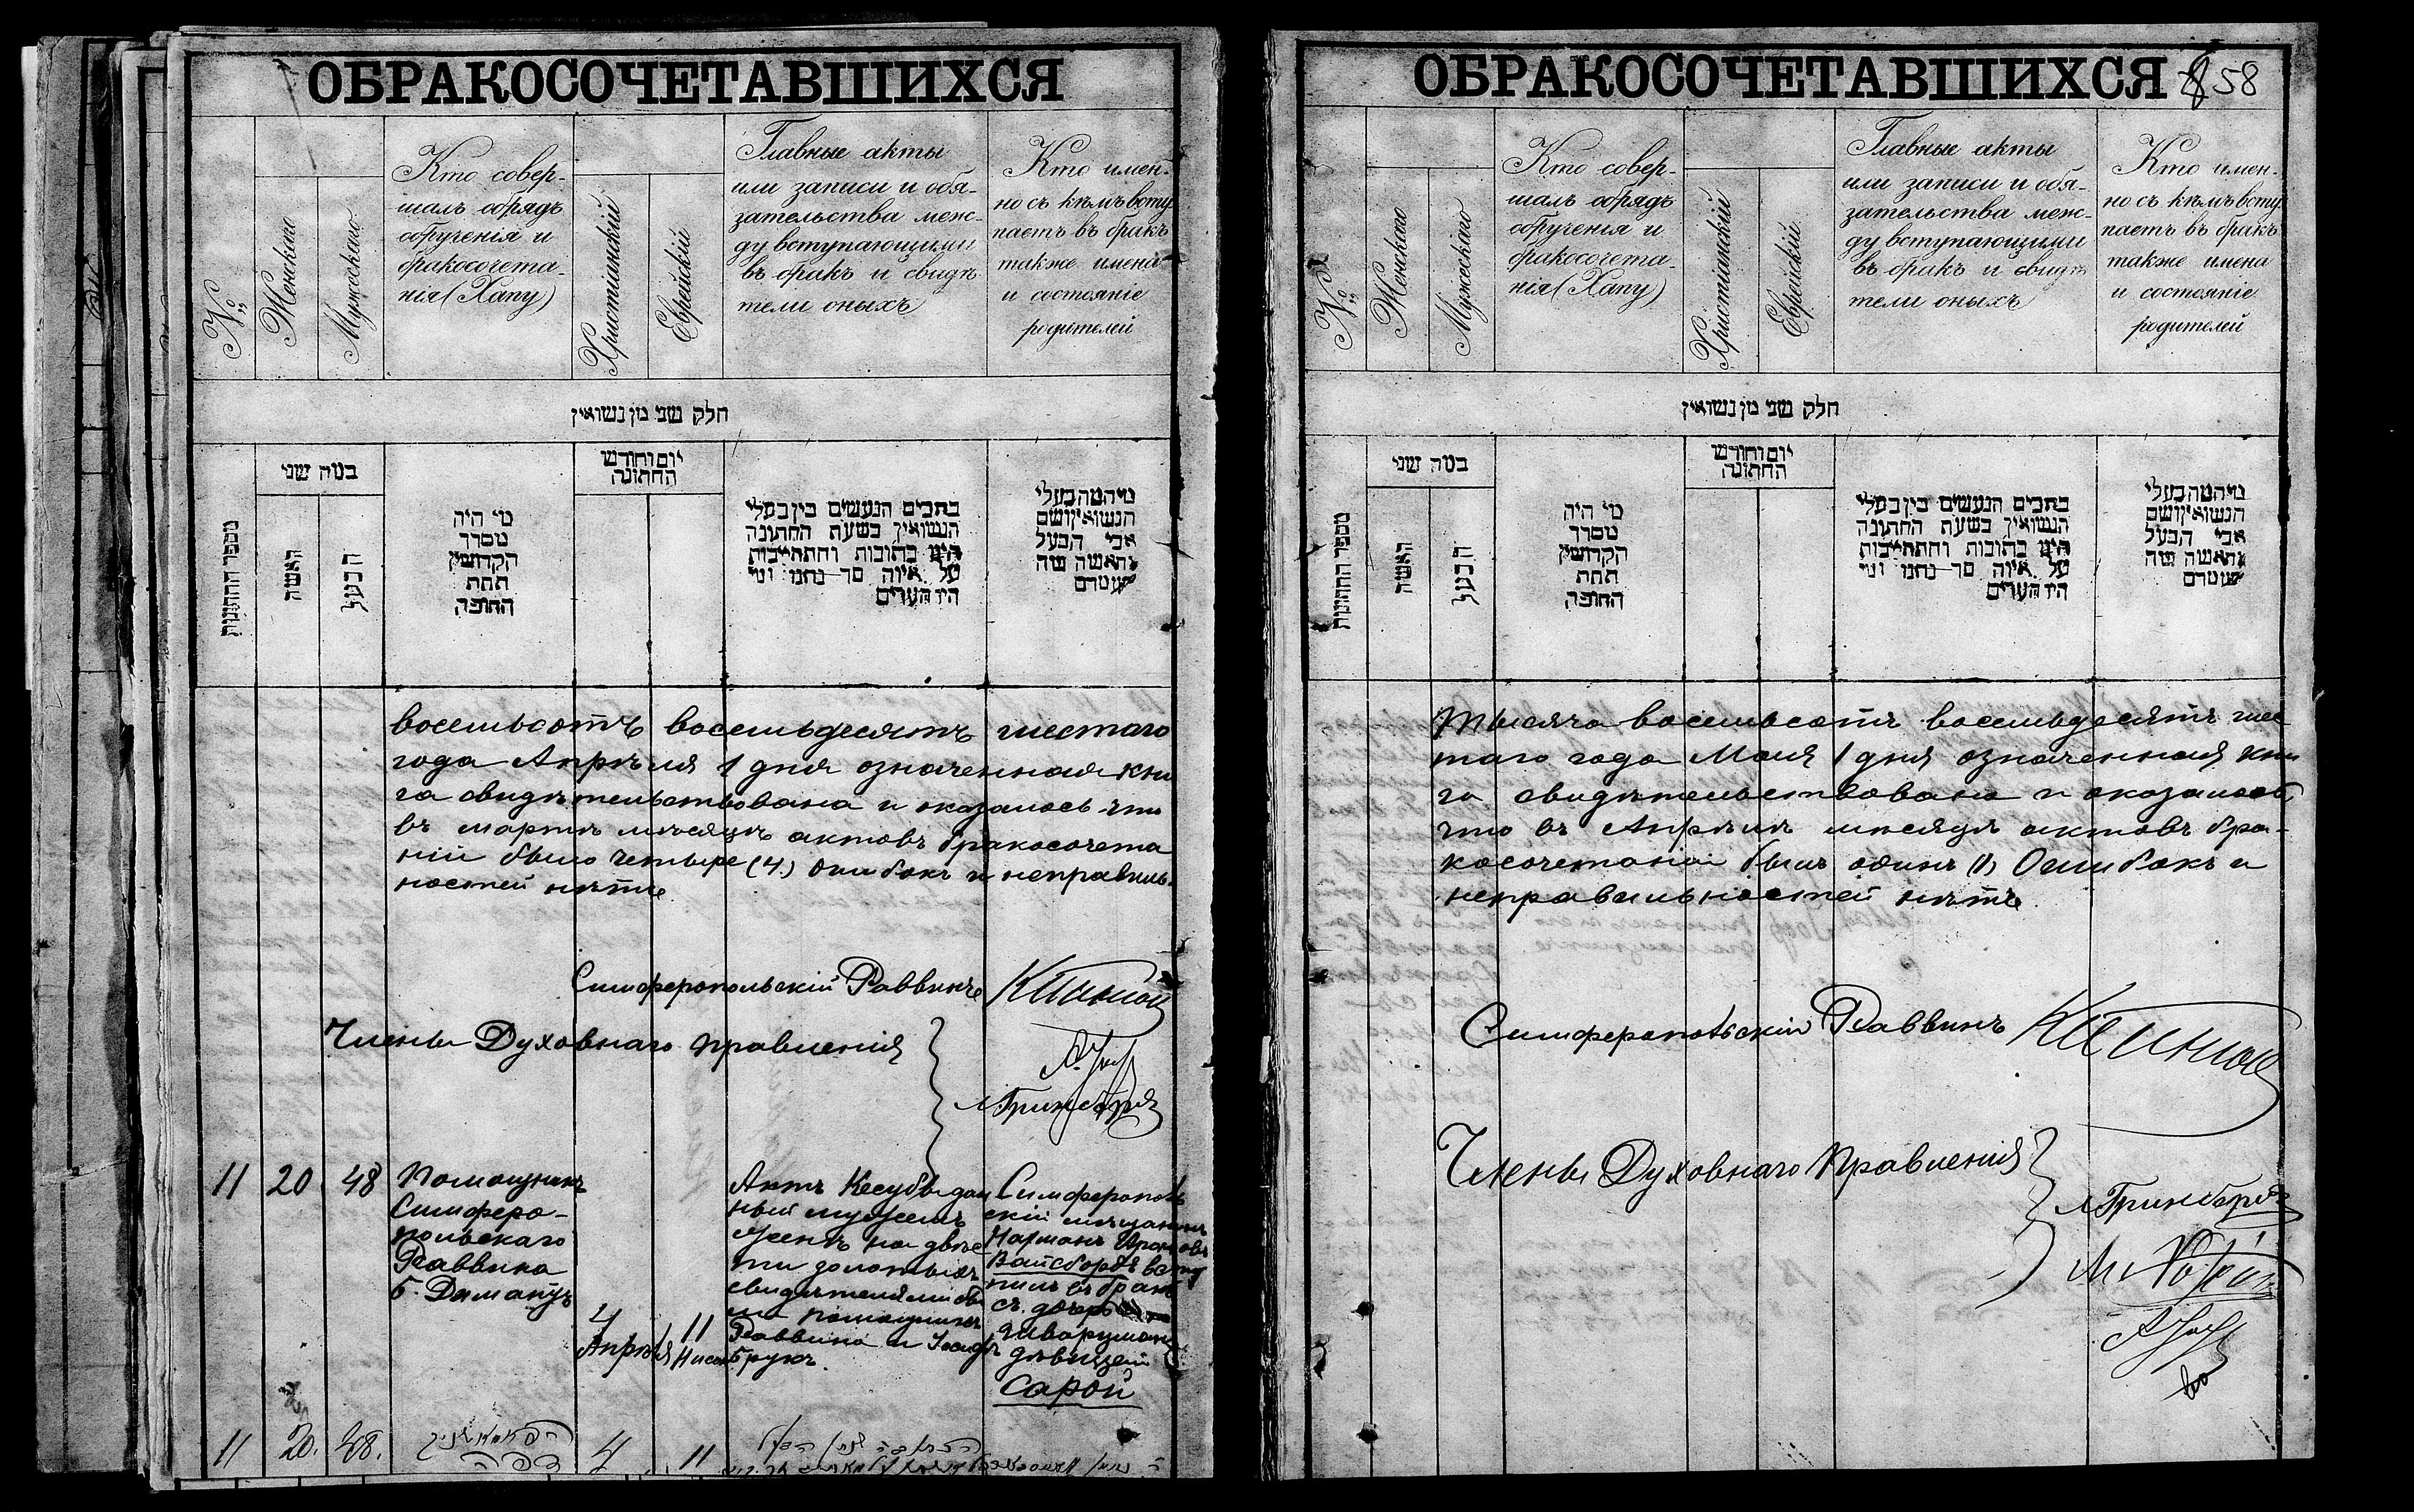 ОБРАКОСОЧЕТАВШИХСЯ
№
Женскаго
Мужескаго
Кто совер-
шалъ обрядъ
обрученія и
бракосочета-
нія (Хапу)
Христіанскій
Еврейскій
Главные акты
или записи и обя-
зательства меж-
ду вступающими
въ бракъ и свидѣ
тели оныхъ
Кто имен-
но съ кѣмъ всту
паетъ въ бракъ
также имена
и состояніе
родителей
חלק שני מן נשואין
מספר החתונות
במה שני
האשה
הבעל
מי היה
מסדר
הקדושין
תחת
החופה
יום וחודש
החתונה
בתבים הנעשים בין בעלי
הנשואין בשעת החתונה
היינו כתובות והתחייבות
על איזה סך נתנו ומי
היו העדים
מי המה בעלי
הנשואין ושם
אבי הבעל
והאשה ומה
מעמדם
восемьсотъ восемьдесятъ шестаго
года Апрѣля 1 дня означенная кни
га свидѣтельствована и оказалось что
въ мартѣ мѣсяцѣ актовъ бракосочета
ній было четыре (4.) ошибокъ и неправиль-
ностей нѣтъ.
Симферопольскій Раввинъ
Члены Духовнаго правленія
Гринбергъ
11 20 48
Помощникъ
Симферо-
польскаго
Раввина
Б.
4
Апрѣля
11
Нисон
Актъ Кесубы дан
ный мужемъ
женѣ на двѣс
ти золотыхъ
свидѣтелями об
помощникъ
Раввина и
Брукъ.
Симферополь
скій мѣщанинъ
Вайсбордъ всту
пилъ въ бракъ
съ дочерью
дѣвицей
Сарой
11 20. 48. 4 11
ОБРАКОСОЧЕТАВШИХСЯ 58
№
Женскаго
Мужескаго
Кто совер-
шалъ обрядъ
обрученія и
бракосочета-
нія (Хапу)
Христіанскій
Еврейскій
Главные акты
или записи и обя-
зательства меж-
ду вступающими
въ бракъ и свидѣ
тели оныхъ
Кто имен-
но съ кѣмъ всту
паетъ въ бракъ
также имена
и состояніе
родителей
חלק שני מן נשואין
מספר החתונות
במה שני
האשה
הבעל
מי היה
מסדר
הקדושין
תחת
החופה
יום וחודש
החתונה
בתבים הנעשים בין בעלי
הנשואין בשעת החתונה
היינו כתובות והתחייבות
על איזה סך נתנו ומי
היו העדים
מי המה בעלי
הנשואין ושם
אבי הבעל
והאשה ומה
מעמדם
тысяча восемьсотъ восемьдесятъ шес
таго года Мая 1 дня означенная кни
га свидѣтельствована и оказалось,
что въ Апрѣлѣ мѣсяцѣ актовъ бра-
косочетаній былъ одинъ (1) Ошибокъ и
неправильностей нѣтъ.
Симферопольскій Раввинъ
Члены Духовнаго Правленія
Гринбергъ